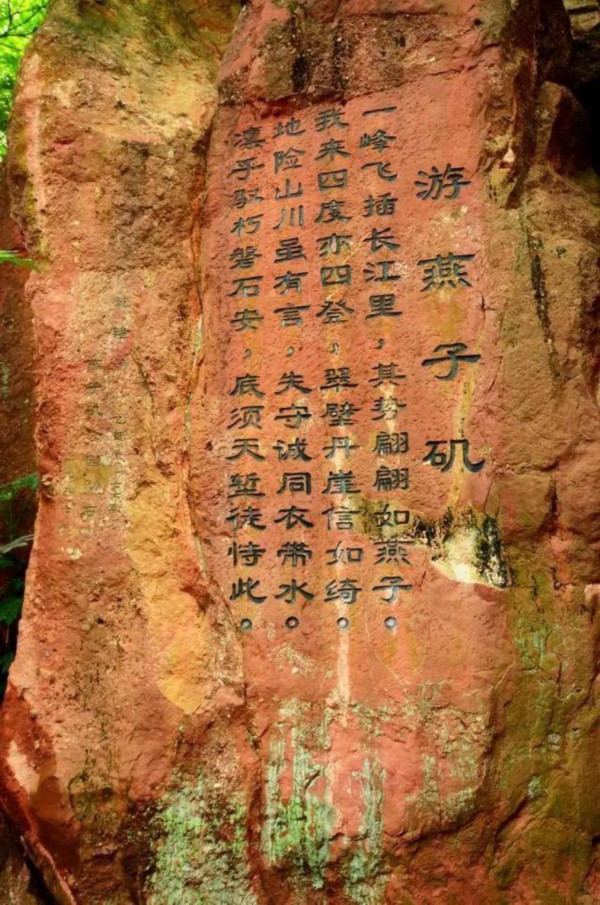 游燕子矶
一峰飞插长江里，其势翩翩如燕子。
我来四度亦四登，翠壁丹崖信如绮。
地险山川虽有言，失守诚同衣带水。
凛乎驭朽磐石安，底须天堑徒恃此。